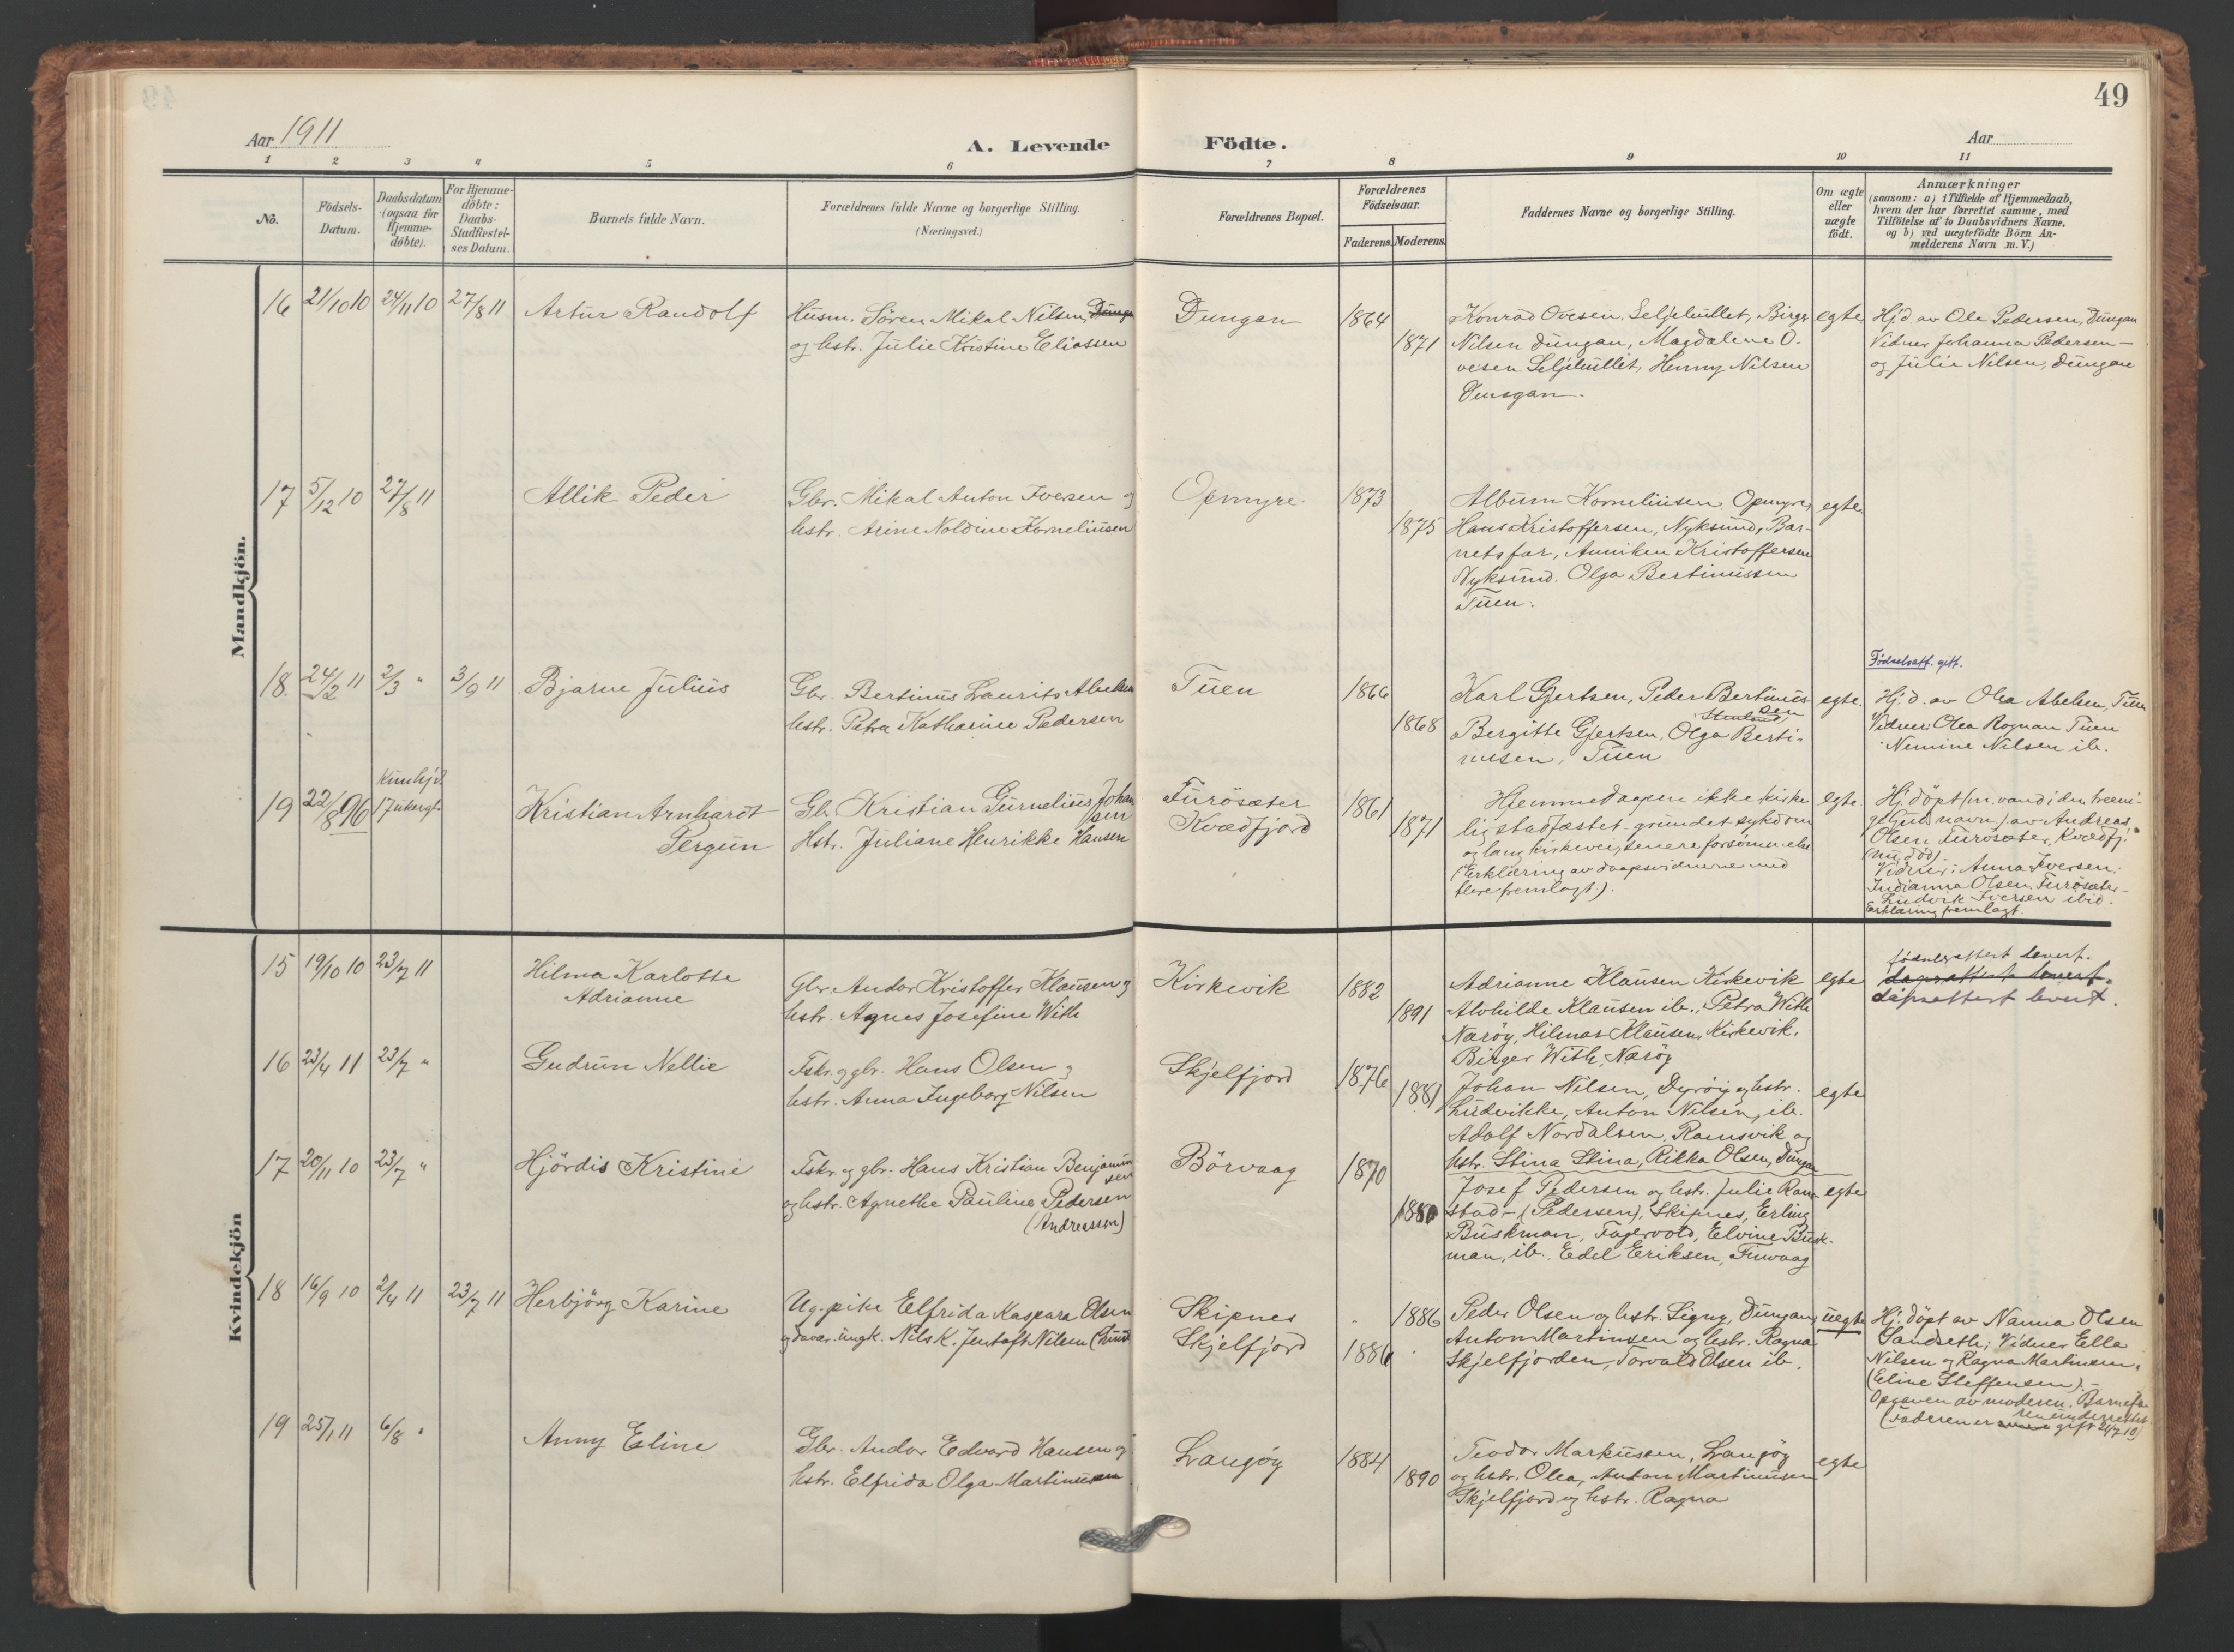 49
Aar 1911
A. Levende Födte.
Aar
1 2 3 4 5 6 7 8 9 10 11
No.
Födsels-
Datum.
Daabsdatum
(ogsaa for
Hjemme-
döbte).
For Hjemme-
döbte:
Daabs-
Stadfæstel-
ses Datum.
Barnets fulde Navn.
Forældrenes fulde Navne og borgerlige Stilling.
(Næringsvei.)
Forældrenes Bopæl.
Forældrenes
Födselsaar.
Faderens. Moderens.
Faddernes Navne og borgerlige Stilling.
Om ægte
eller
uægte
födt.
Anmærkninger
(saasom: a) i Tilfælde af Hjemmedaab,
hvem der har forrettet samme, med
Tilföielse af to Daabsvidners Navne.
og b) ved uægtefödte Börn An-
melderens Navn m. V.)
Mandkjön.
16 21/10 10 24/11 10 27/8 11 Artur Randolf
Husm. Sören Mikal Nilsen, Dungan
og hstr. Julie Kristine Eliassen
Dungan
1864
1871
Konrad Ovesen, Seljehullet, Birger
Nilsen Dungan, Magdalene O-
vesen Seljehullet, Henny Nilsen
Dungan.
egte
Hj.d. av Ole Pedersen, Dungan
Vidner Johanna Pedersen –
og Julie Nilsen, Dungan
17 5/12 10 27/8 11 Allik Peder
Gbr. Mikal Anton Iversen og
hstr. Arine Noldine Kornelinsen
Opmyre.
1873
1875
Album Kornelinsen, Opmyre,
Hans Kristoffersen, Nyksund, Bar-
nets far, Anniken Kristoffersen
Nyksund. Olga Bertinussen
Tuen.
egte.
18. 24/2 11 2/3 " 3/9 11 Bjarne Julius
Gbr. Bertinus Laurits Abelsen
hstr. Petra Katharine Pedersen
Tuen
1866
1868
Karl Gjertsen, Peder Bertinus-
sen
Bergitte Gjertsen, Olga Berti-
nussen, Tuen
egte.
Födselsatt. gitt.
Hj.d. av Olea Abelsen, Tuen
Vidner: Olea Rognan Tuen
Nemine Nilsen ib.
19 22/8 96 Kun hjd.
17 uker gl.
Kristian Arnhardt
Pergun
Gbr. Kristian Gurnelius Johan
sen
Hstr. Juliane Henrikke Hansen
Furösæter
Kvædfjord
1861
1871
Hjemmedaapen ikke kirke
lig stadfæstet grundet sykdom
og lang kirkevei, senere forsömmelse
(Erklæring av daapsvidnerne med
flere fremlagt).
egte.
Hj. döpt (m. vand i den treeni-
ge Guds navn) av Andreas
Olsen, Furösæter, Kvædfj.
(nu död)
Vidner: Anna Iversen,
Indianna Olsen, Furösæter –
Ludvik Iversen ibid.
Erklæring fremlagt.
Kvindekjön
15 19/10 10 23/7 11 Hilma Karlotte
Adrianne
Gbr. Andor Kristoffer Klausen og
hstr. Agnes Josefine With
Kirkevik
1882
1891
Adrianne Klausen Kirkevik
Alvhilde Klausen ib., Petra With
Næröy, Hilmar Klausen, Kirkevik.
Birger With, Næröy
egte
födselsattest levert.
dåpsattest levert.
dåpsattest levert.
16 23/4 11 23/7 " Gudrun Nellie
Fskr. og gbr. Hans Olsen og
hstr. Anna Ingeborg Nilsen
Skjelfjord
1876
1881
Johan Nilsen, Dyröy og hstr.
Ludvikke, Anton Nilsen, ib.
Adolf Nordalsen, Ramsvik og
hstr. Stina Stina, Rikka Olsen, Dungan
egte
17 20/11 10 23/7 " Hjördis Kristine
Fskr. og gbr. Hans Kristian Benjamin
sen
og hstr. Agnethe Pauline Pedersen
(Andreassen)
Börvaag
1870
1880
Josef Pedersen og hstr. Julie Ram-
stad – (Pedersen), Skipnes, Erling
Buskman, Fagervold, Elvine Busk-
man, ib. Edel Eriksen, Finvaag
egte
18 16/9 10 2/4 11 23/7 11 Herbjörg Karine
Ug. pike Elfrida Kaspara Olsen
og davær. ungk. Nils K. Jentoft Nilsen
Skipnes
Skjelfjord
1886
1886
Peder Olsen og hstr. Signy, Dungan,
Anton Martinsen og hstr. Ragna
Skjelfjorden, Torvald Olsen ib.
uegte
Hj. döpt av Nanna Olsen
Sandseth; Vidner Ella
Nilsen og Ragna Martinsen.
(Eline Steffensen). –
Opgaven av moderen. Barnefa-
ren underrettet.
(Faderen er gift 24/7 10)
19 25/1 11 6/8 " Anny Eline
Gbr. Andor Edvard Hansen og
hstr. Elfrida Olga Martinussen
Langöy
1884
1890
Teodor Markussen, Langöy
og hstr. Olea, Anton Martinussen
Skjelfjord og hstr. Ragna
egte